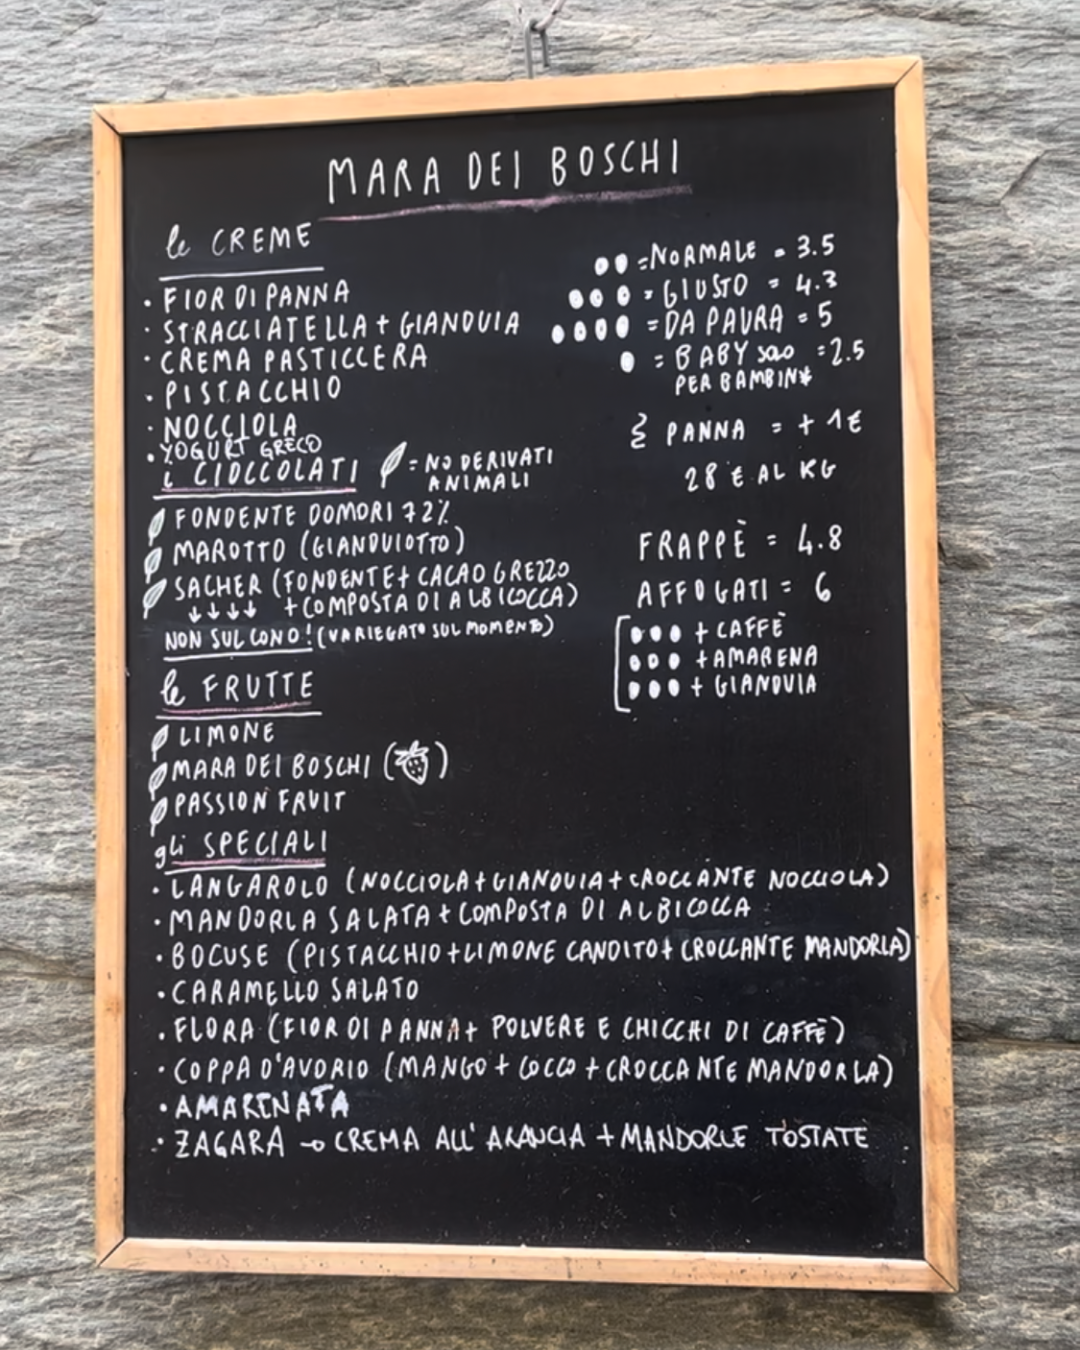 MARA DEI BOSCHI
le CREME
• FIOR DI PANNA
• STRACCIATELLA + GIANDUIA
• CREMA PASTICCERA
• PISTACCHIO
• NOCCIOLA
• YOGURT GRECO
i CIOCCOLATI
= NO DERIVATI
ANIMALI
FONDENTE DOMORI 72%
MAROTTO (GIANDUIOTTO)
SACHER (FONDENTE + CACAO GREZZO
↓↓↓↓ + COMPOSTA DI ALBICOCCA)
NON SUL CONO! (VARIEGATO SUL MOMENTO)
le FRUTTE
LIMONE
MARA DEI BOSCHI ( )
PASSION FRUIT
gli SPECIALI
• LANGAROLO (NOCCIOLA + GIANDUIA + CROCCANTE NOCCIOLA)
• MANDORLA SALATA + COMPOSTA DI ALBICOCCA
• BOCUSE (PISTACCHIO + LIMONE CANDITO + CROCCANTE MANDORLA)
• CARAMELLO SALATO
• FLORA (FIOR DI PANNA + POLVERE E CHICCHI DI CAFFÈ)
• COPPA D'AVORIO (MANGO + COCCO + CROCCANTE MANDORLA)
• AMARENATA
• ZAGARA → CREMA ALL' ARANCIA + MANDORLE TOSTATE
●● = NORMALE = 3.5
●●● = GIUSTO = 4.3
●●●● = DA PAURA = 5
● = BABY solo = 2.5
PER BAMBIN*
PANNA = + 1€
28 € AL KG
FRAPPÈ = 4.8
AFFOGATI = 6
●●● + CAFFÈ
●●● + AMARENA
●●● + GIANDUIA